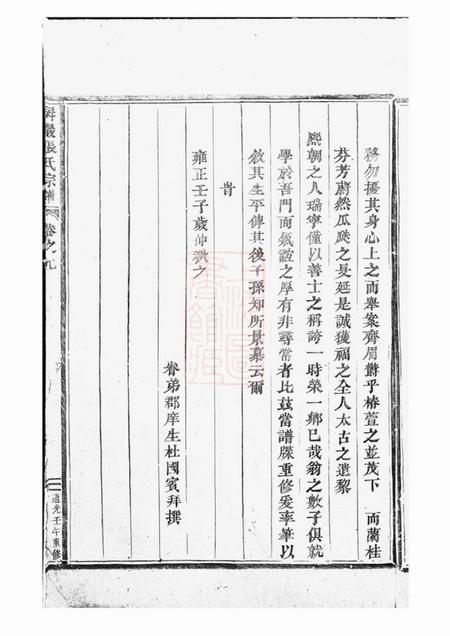 務勿擾其身心上之而舉案齊眉鬱乎椿萱之並茂下而蘭桂
芬芳蔚然瓜瓞之曼延是誠獲福之全人太古之遺黎
熙朝之人瑞寧僅以善士之稱誇一時榮一鄉已哉翁之數子俱就
學於吾門而氣誼之厚有非尋常者比茲當譜牒重修爰率筆以
敘其生平傳其後子孫知所景慕云爾
旹
雍正壬子歲仲秋之
眷弟郡庠生杜國賓拜撰
張氏宗譜
卷之九
道光壬午重修